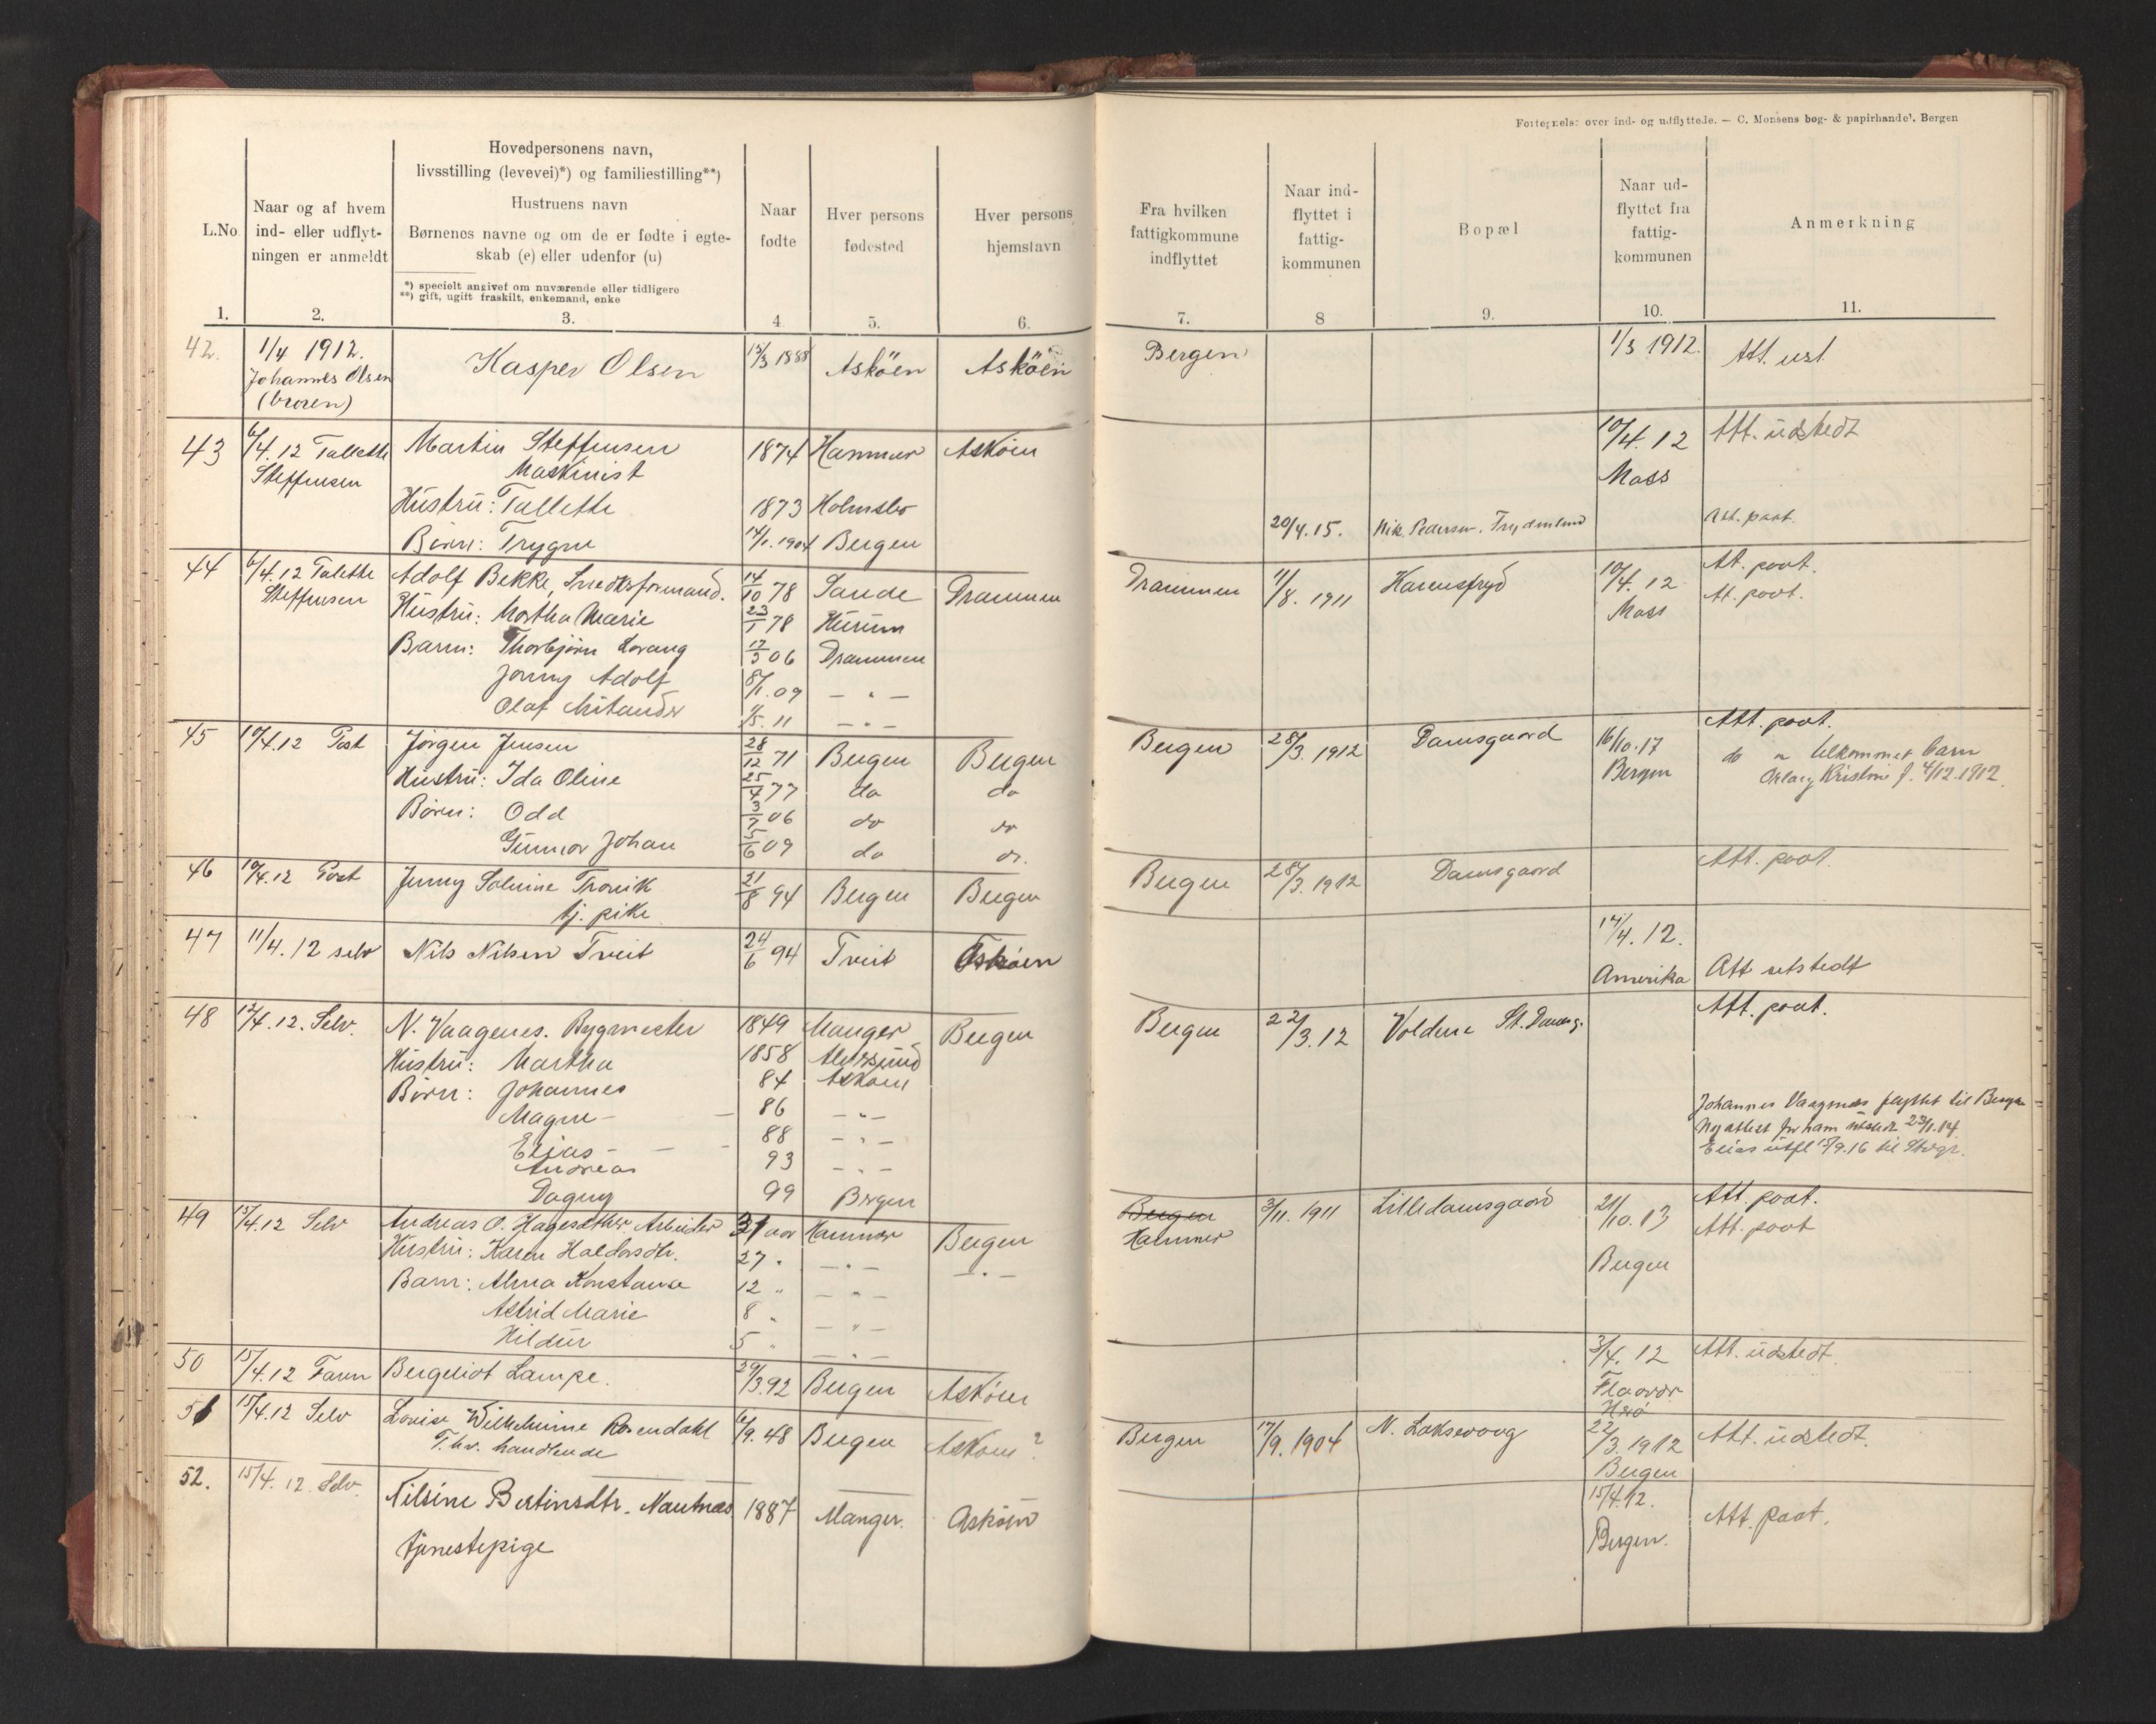 Fortegnelse over ind- og udflyttede. — C. Monsens bog- & papirhandel, Bergen
L.No.
Naar og af hvem
ind- eller udflyt-
ningen er anmeldt
Hovedpersonens navn,
livsstilling (levevei)*) og familiestilling**)
Hustruens navn
Børnenes navne og om de er fødte i egte-
skab (e) eller udenfor (u)
*) specielt angivet om nuværende eller tidligere
**) gift, ugift fraskilt, enkemand, enke
Naar
fødte
Hver persons
fødested
Hver persons
hjemstavn
Fra hvilken
fattigkommune
indflyttet
Naar ind-
flyttet i
fattig-
kommunen
Bopæl
Naar ud-
flyttet fra
fattig-
kommunen
Anmerkning
1. 2. 3. 4. 5. 6. 7. 8 9. 10. 11.
42. 1/4 1912. Kasper Olsen 13/3 1888 Askøen Askøen Bergen 1/3 1912. Att. ust
Johannes Olsen
(broren)
43 6/4.12 Tallette Martin Steffensen 1874 Hammer Askøen 10/4.12 Att. üdstedt
Steffensen Maskinist Moss
Hüstrü: Tallette 1873 Holmsbo
20/4.15. Nik. Pedersen. Att. paat.
Børn: Trygve 14/1.1904 Bergen
44 6/4.12 Talette Adolf Bekke, Smedksformand. 14/10 78 Sande Drammen Drammen 11/8.1911 Karensfryd 10/4.12 At. paat.
Steffensen Hüstrü: Martha Marie 23/1 78 Hürüm Moss At. paat.
Barn: Thorbjørn Lorang 17/3 06 Drammen
Jonny Adolf 8/11.09 — " —
Olaf 1/5.11 — " —
45 10/4.12 Post Jørgen Jensen 28/12 71 Bergen Bergen Bergen 28/3.1912 Damsgaard 16/10.17 Att. paat.
Hüstrü: Ida Oline 25/4 77 do do Bergen do " tilkommet barn
Kristine f. 4/12.1912.
Børn: Odd 3/7 06 do do
Günnar Johan 5/6 09 do do.
46 10/4.12 Post Jenny Salvine Tronvik 21/8 94 Bergen Bergen Bergen 28/3.1912 Damsgaard Att. paat.
tj. pike
47 11/4.12 selv Nils Nilsen Tveit 24/6 94 Tveit Askøen 14/4.12.
Amerika Att utstedt
48 12/4.12. Selv. N. Vaagenes. Bygmester 1849 Manger Bergen Bergen 22/3.12 Voldene St. Damsg. Att. paat.
Hüstrü: Martha 1858 Alversünd
Børn: Johannes 84 Askøen
Magne — — 86 — " —
Elias — — — 88 — " —
Andreas 93 — " —
Dagny 99 Bergen
Johannes Vaagenes flyttet til Bergen
Ny attest for ham utstedt 23/1.14.
Elias ütfl 15/9.16 til
49 13/4.12 Selv Andreas O. Hagesæther Arbeider 31 aar Hammer Bergen Bergen 3/11.1911 Lilledamsgaard 21/10.13 Att. paat.
Hüstrü: Karen Haldorsdtr. 27 " — " — — " — Hammer Bergen Att. paat
Barn: Alma Konstanse 12 " — " —
Astrid Marie 8 " — " —
Hildür 5 " — " —
50 15/4.12 Faren Bergeliot Lampe. 29/3.92 Bergen Askøen 3/4.12 Att. üdstedt.
Flaavær
Herø
51 15/4.12 Selv Lovise Wilhelmine Rosendahl 6/9.48 Bergen Askøen? Bergen 17/9.1904 N. Laksevaag 22/3.1912 Att. üdstedt.
T.hv. handlende Bergen
52. 15/4.12. Selv. Nilsine Bertinsdtr. Nautnes. 1887 Manger. Askøen 15/4.12. Att. paat.
tjenestepige Bergen.